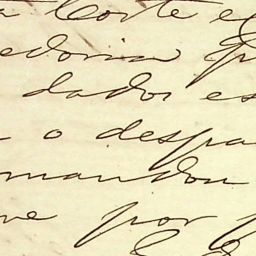 a Corte e
edoria
dados es
o despa
mandou
ve por